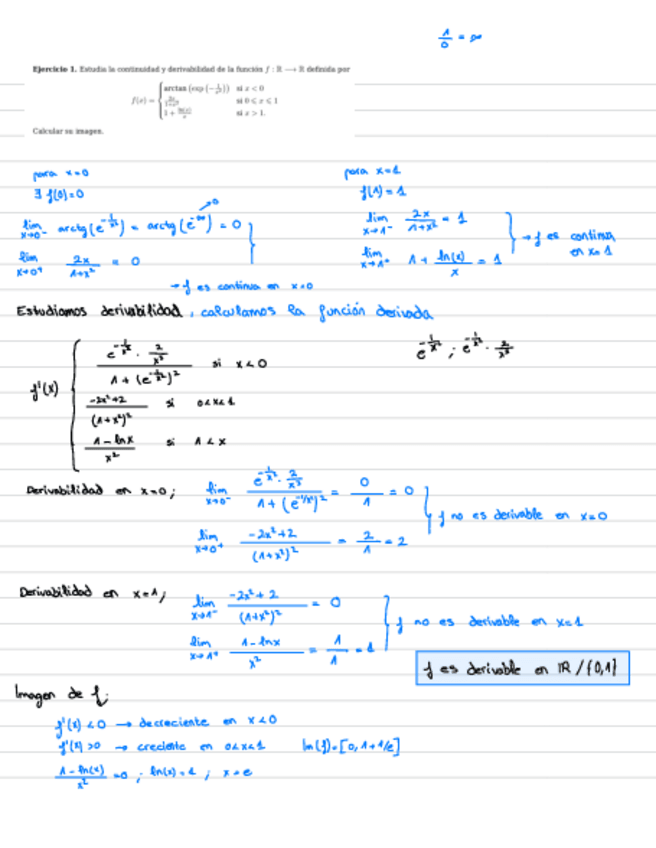 1/0 = ∞
Ejercicio 1. Estudia la continuidad y derivabilidad de la función f : ℝ → ℝ definida por
f(x) = { arctan (exp (-1/x²)) si x < 0
2x/(1+x²) si 0 ≤ x ≤ 1
1 + ln(x)/x si x > 1.
Calcular su imagen.
para x=0
∃ f(0)=0
lim x→0⁻ arctg(e^(-1/x²)) = arctg(e^(-∞)) = 0
→0
lim x→0⁺ 2x/(1+x²) = 0
→ f es continua en x=0
para x=1
f(1)=1
lim x→1⁻ 2x/(1+x²) = 1
lim x→1⁺ 1 + ln(x)/x = 1
→ f es continua
en x=1
Estudiamos derivabilidad, calculamos la función derivada
f'(x) { (e^(-1/x²) · 2/x³)/(1+(e^(-1/x²))²) si x<0
(-2x²+2)/(1+x²)² si 0<x<1
(1-lnx)/x² si 1<x
e^(-1/x²) ; e^(-1/x²) · 2/x³
Derivabilidad en x=0; lim x→0⁻ (e^(-1/x²) · 2/x³)/(1+(e^(-1/x²))²) = 0/1 = 0
lim x→0⁺ (-2x²+2)/(1+x²)² = 2/1 = 2
f no es derivable en x=0
Derivabilidad en x=1; lim x→1⁻ (-2x²+2)/(1+x²)² = 0
lim x→1⁺ (1-lnx)/x² = 1/1 = 1
f no es derivable en x=1
f es derivable en ℝ/{0,1}
Imagen de f;
f'(x)<0 → decreciente en x<0
f'(x)>0 → creciente en 0<x<1 Im(f)=[0,1+1/e]
(1-ln(x))/x² =0 ; ln(x)=1 ; x=e